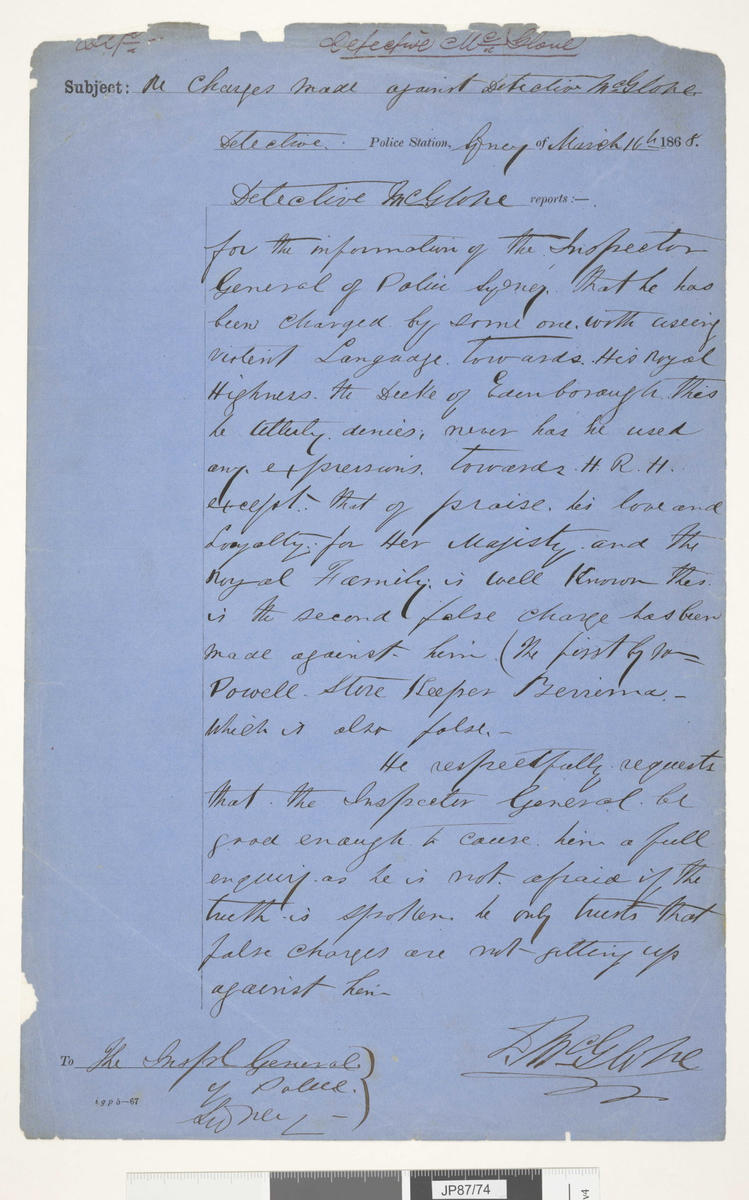 Detective McGlone
Subject: Re Charges made against Detective McGlone
Detective. Police Station, Sydney of March 16th 1868.
Detective McGlone reports:—
for the information of the Inspector
General of Police Sydney. that he has
been charged by some one. with useing
violent Language. towards. His Royal
Highness. the Duke of Edenborough. this
he utterly denies, never has he used
any expressions. towards H. R. H.
except. that of praise. his love and
Loyalty. for Her Majisty. and the
Royal Family. is well Known this
is the second false charge has been
made against him (the first by Wm
Powell Store Keeper Berrima –
which is also false. –
He respectfully requests
that the Inspector General be
good enough to cause him a full
enquiry. as he is not afraid if the
truth is spoken he only trusts that
false charges are not getting up
against him
McGlone
To The Inspl General
of Police.
Sydney –
i g p 5—67
JP87/74